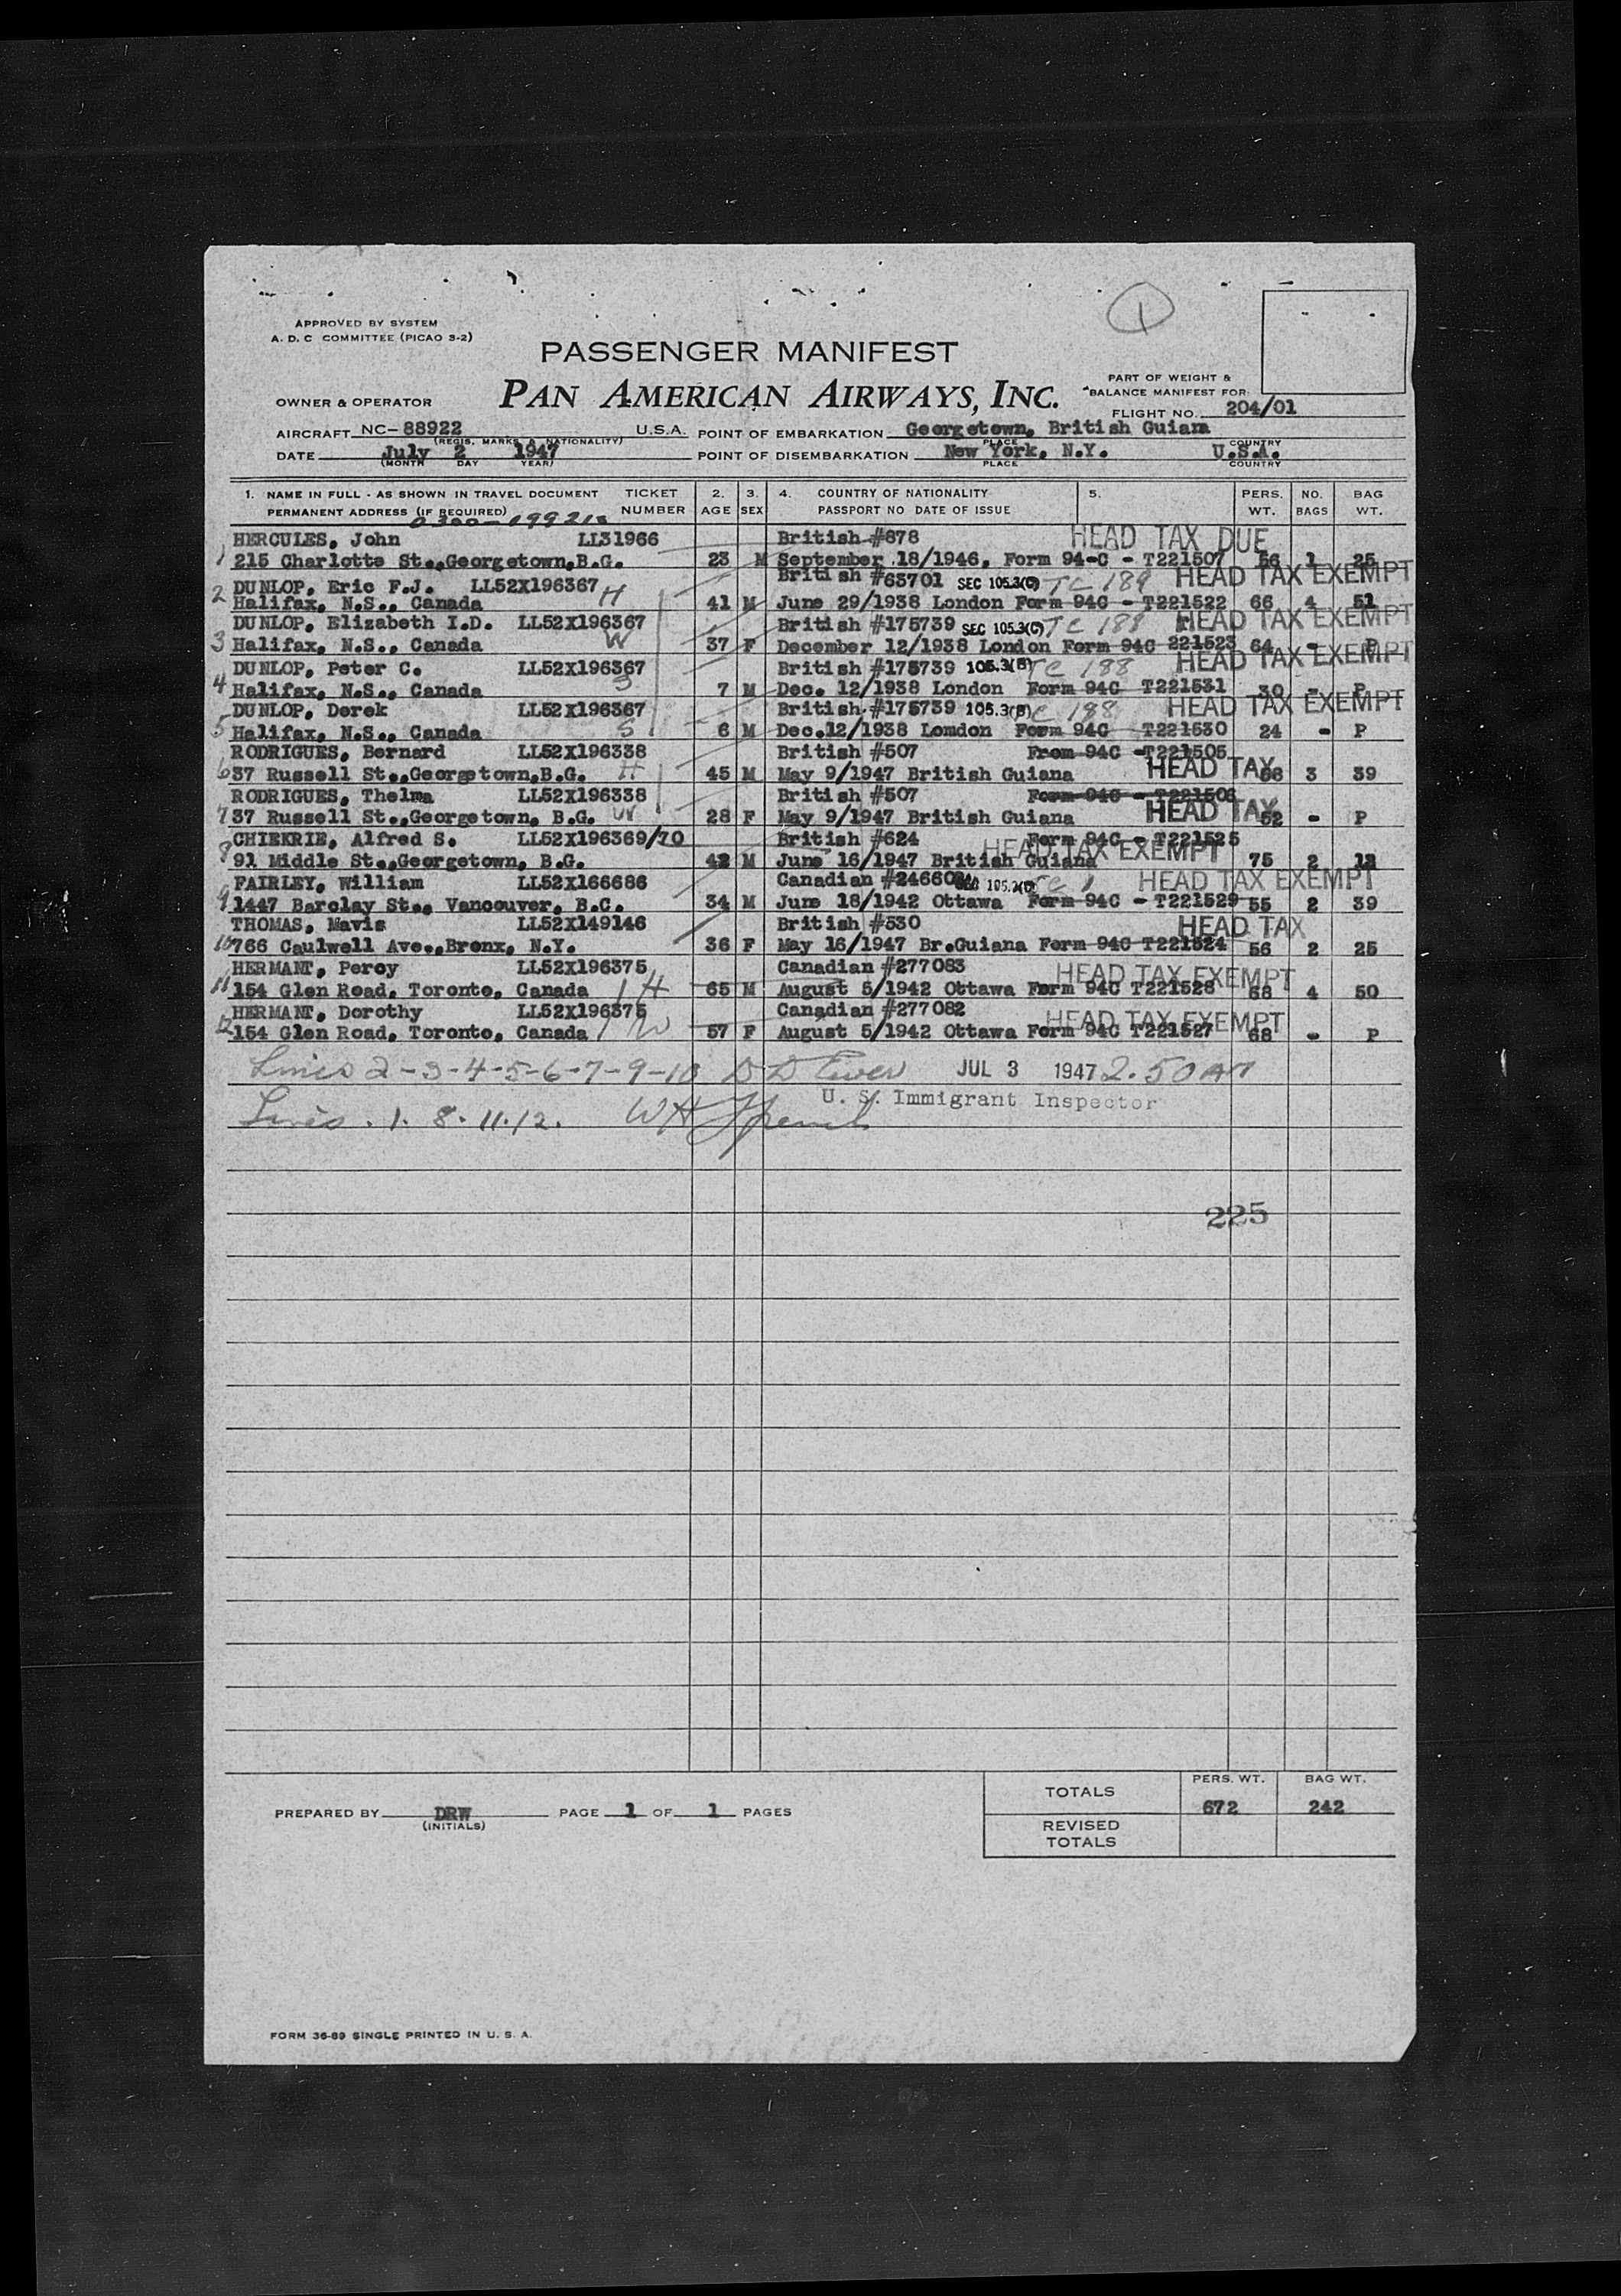 1
APPROVED BY SYSTEM
A. D. C COMMITTEE (PICAO 3-2)
PASSENGER MANIFEST
PAN AMERICAN AIRWAYS, INC.
PART OF WEIGHT &
BALANCE MANIFEST FOR
OWNER & OPERATOR
FLIGHT NO. 204/01
AIRCRAFT NC-88922 U.S.A. POINT OF EMBARKATION Georgetown, British Guiana
(REGIS. MARKS & NATIONALITY) PLACE COUNTRY
DATE July 2 1947 POINT OF DISEMBARKATION New York, N.Y. U.S.A.
(MONTH DAY YEAR) PLACE COUNTRY
1. NAME IN FULL - AS SHOWN IN TRAVEL DOCUMENT TICKET 2. 3. 4. COUNTRY OF NATIONALITY 5. PERS. NO. BAG
PERMANENT ADDRESS (IF REQUIRED) NUMBER AGE SEX PASSPORT NO DATE OF ISSUE WT. BAGS WT.
0300-19921s
HERCULES, John LL31966 British #878 HEAD TAX DUE
1 215 Charlotte St.,Georgetown,B.G. 23 M September 18/1946, Form 94-C - T221507 56 1 25
DUNLOP, Eric F.J. LL52X196367 British #63701 SEC 105.3(C) TC 189 HEAD TAX EXEMPT
2 Halifax, N.S., Canada H 41 M June 29/1938 London Form 94C - T221522 66 4 51
DUNLOP, Elizabeth I.D. LL52X196367 British #175739 SEC 105.3(C) TC 188 HEAD TAX EXEMPT
3 Halifax, N.S., Canada W 37 F December 12/1938 London Form 94C 221523 64 - P
DUNLOP, Peter C. LL52X196367 British #175739 105.3(B) TC 188 HEAD TAX EXEMPT
4 Halifax, N.S., Canada S 7 M Dec. 12/1938 London Form 94C T221531 30 - P
DUNLOP, Derek LL52X196367 British #175739 105.3(B) C 188 HEAD TAX EXEMPT
5 Halifax, N.S., Canada S 6 M Dec.12/1938 Lomdon Form 94C T221530 24 - P
RODRIGUES, Bernard LL52X196338 British #507 From 94C -T221505
6 37 Russell St.,Georgetown,B.G. H 45 M May 9/1947 British Guiana HEAD TAX 3 39
RODRIGUES, Thelma LL52X196338 British #507 Form 94C - T221506
7 37 Russell St.,Georgetown, B.G. W 28 F May 9/1947 British Guiana HEAD TAX 52 - P
CHIEKRIE, Alfred S. LL52X196369/70 British #624 Form 94C - T221525
8 91 Middle St.,Georgetown, B.G. 42 M June 16/1947 British Guiana HEAD TAX EXEMPT 75 2 13
FAIRLEY, William LL52X166686 Canadian #246602 SEC 105.3(C) TC 1 HEAD TAX EXEMPT
9 1447 Barclay St., Vancouver, B.C. 34 M June 18/1942 Ottawa Form 94C - T221529 55 2 39
THOMAS, Mavis LL52X149146 British #530 HEAD TAX
10 766 Caulwell Ave.,Bronx, N.Y. 36 F May 16/1947 Br.Guiana Form 94C T221524 56 2 25
HERMANT, Percy LL52X196375 Canadian #277083 HEAD TAX EXEMPT
11 154 Glen Road, Toronto, Canada H 65 M August 5/1942 Ottawa Form 94C T221528 68 4 50
HERMANT, Dorothy LL52X196375 Canadian #277082 HEAD TAX EXEMPT
12 154 Glen Road, Toronto, Canada W 57 F August 5/1942 Ottawa Form 94C T221527 68 - P
Lines 2-3-4-5-6-7-9-10 JUL 3 1947 2.50 AM
U. S. Immigrant Inspector
Lines . 1. 8. 11. 12. WH French
225
TOTALS PERS. WT. BAG WT.
672 242
PREPARED BY DRW PAGE 1 OF 1 PAGES
(INITIALS)
REVISED
TOTALS
FORM 36-89 SINGLE PRINTED IN U. S. A.